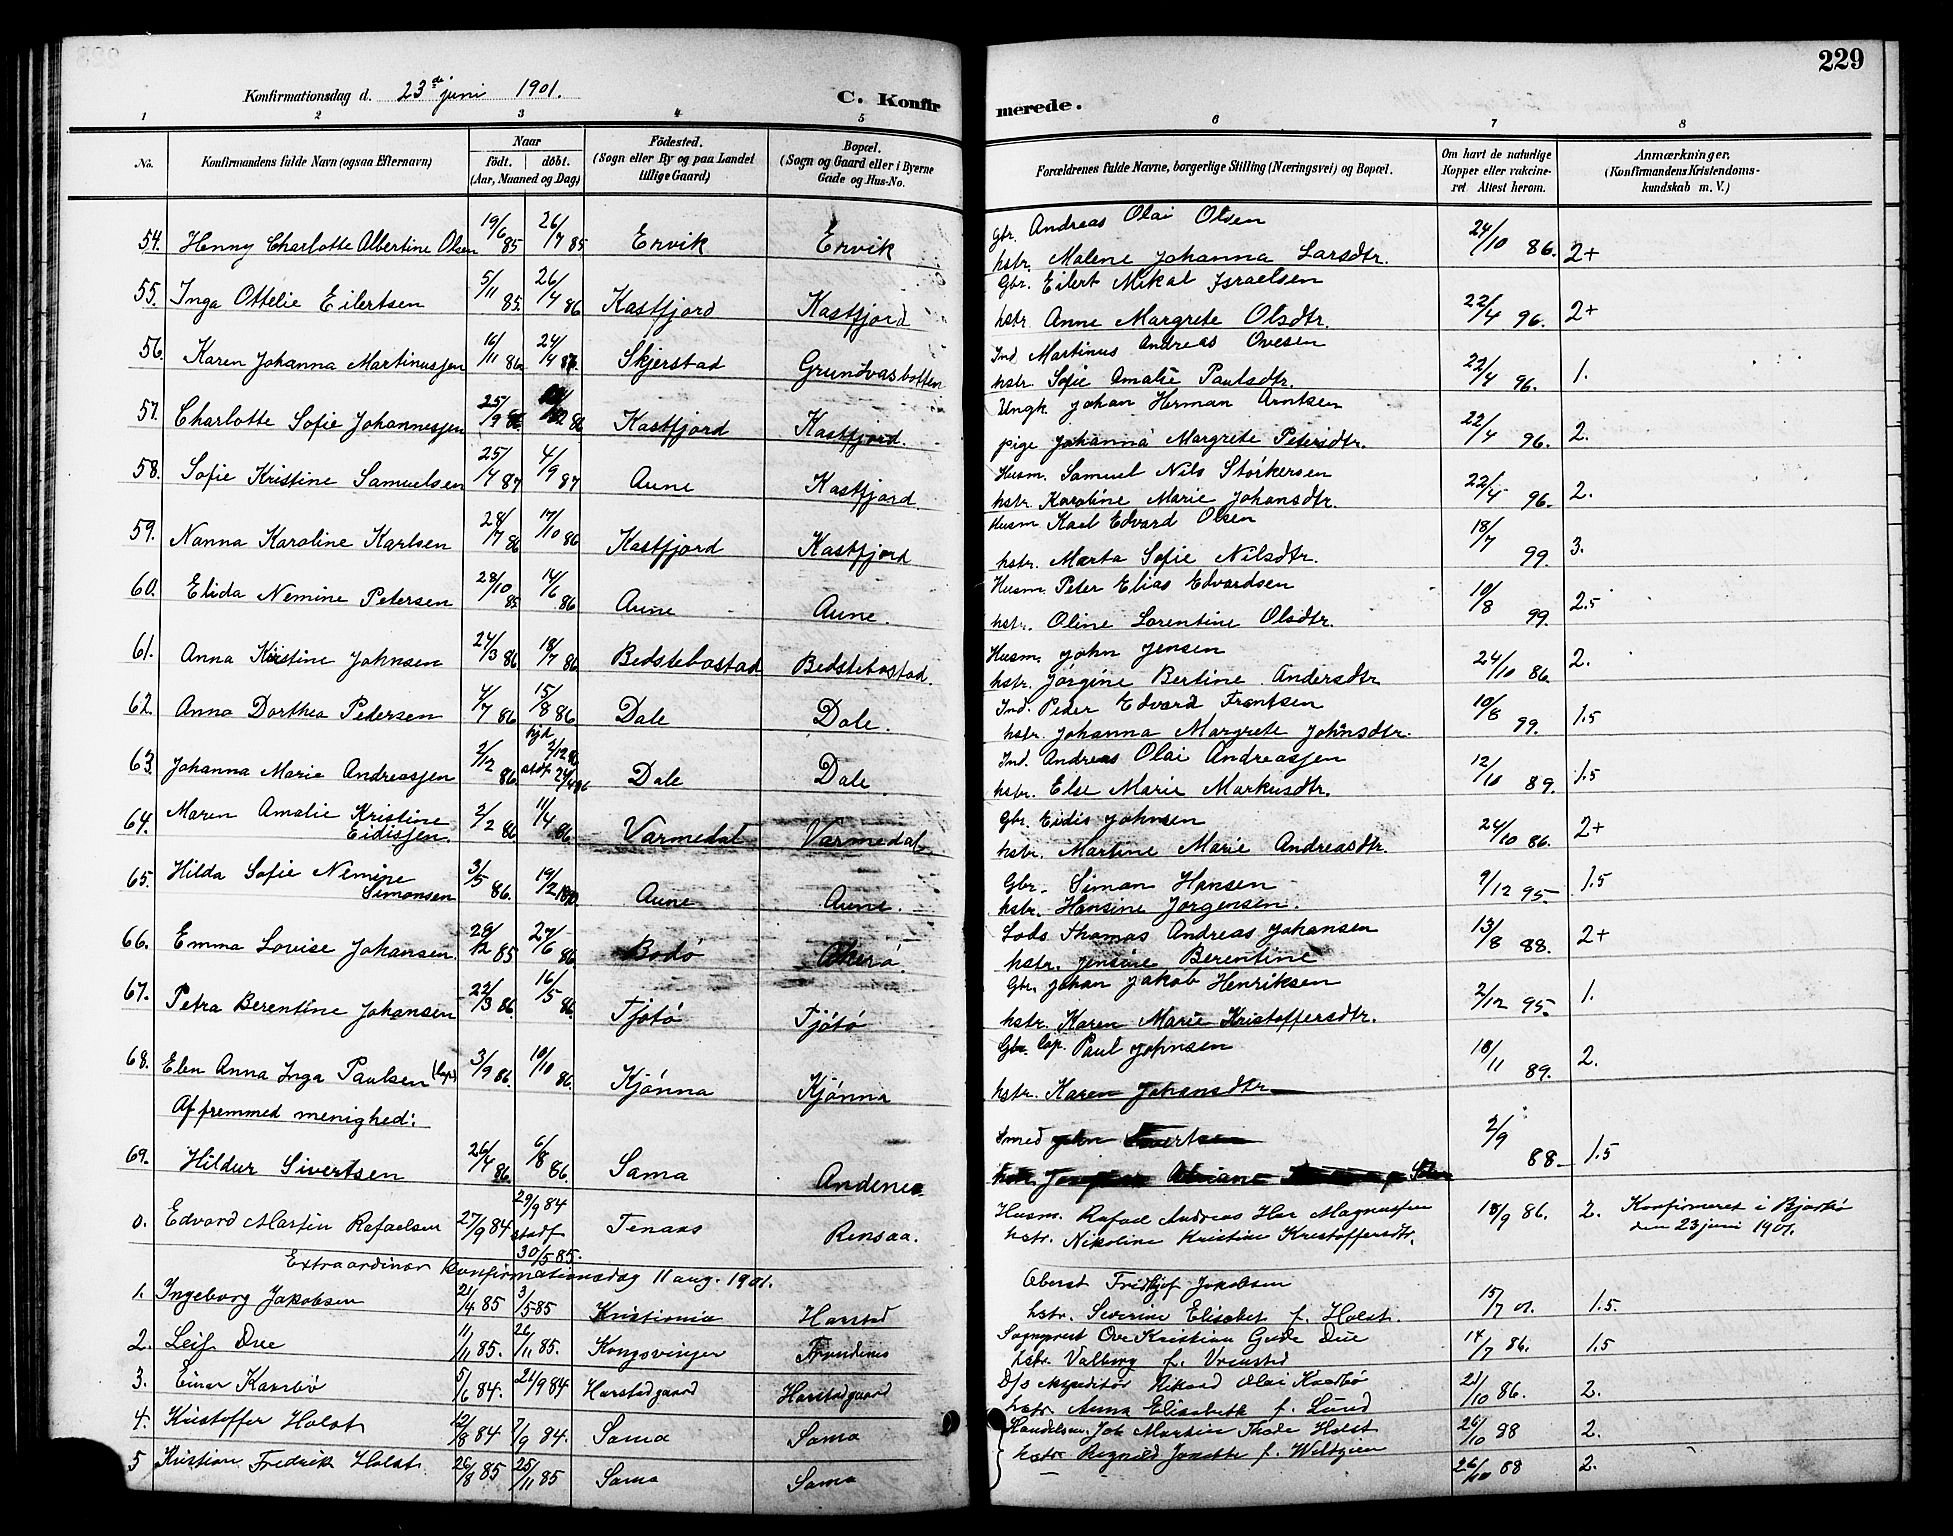 229
Konfirmationsdag d. 23de juni 1901.
C. Konfirmerede.
1 2 3 4 5 6 7 8
No. Konfirmandens fulde Navn (ogsaa Efternavn) Naar født. døbt. (Aar, Maaned og Dag) Fødested. (Sogn eller By og paa Landet tillige Gaard) Bopæl. (Sogn og Gaard eller i Byerne Gade og Hus-No. Forældrenes fulde Navne, borgerlige Stilling (Næringsvei) og Bopæl. Om havt de naturlige Kopper eller vakcineret. Attest herom. Anmærkninger. (Konfirmandens Kristendomskundskab m. V.)
54. Henny Charlotte Albertine Olsen 19/6 85 26/7 85 Ervik Ervik Gbr. Andreas Olai Olsen
hstr. Malene Johanna Larsdtr. 24/10 86. 2+
55. Inga Ottelie Eilertsen 5/11 85. 26/4 86 Kastfjord Kastfjord Gbr. Eilert Mikal Israelsen
hstr. Anne Margrete Olsdtr. 22/4 96. 2+
56. Karen Johanna Martinussen 16/11 86 24/4 87. Skjerstad Grundvasbotten Ind. Martinus Andreas Ovesen
hstr. Sofie Amalie Paulsdtr. 22/4 96. 1.
57. Charlotte Sofie Johannessen 25/9 86 86 Kastfjord Kastfjord. Ungk. Johan Herman Arntsen
pige Johanna Margrete Petersdtr. 22/4 96. 2.
58. Sofie Kristine Samuelsen 25/4 87 4/9 87 Aune Kastfjord. Husm. Samuel Nils Størkersen
hstr. Karoline Marie Johansdtr. 22/4 96. 2.
59. Nanna Karoline Karlsen 28/7 86 17/10 86 Kastfjord Kastfjord Husm Karl Edvard Olsen
hstr. Marta Sofie Nilsdtr. 18/7 99. 3.
60. Elida Nemine Petersen 28/10 85 14/6 86 Aune Aune. Husm. Peter Elias Edvardsen
hstr. Oline Lorentine Olsdtr. 10/8 99. 2.5
61. Anna Kristine Johnsen 24/3 86 18/7 86 Bedstebostad Bedstebostad. Husm. John Jensen
hstr. Jørgine Bertine Andersdtr 24/10 86. 2.
62. Anna Dorthea Pedersen 4/7 86 15/8 86 Dale Dale. Ind. Peder Edvard Frantsen
hstr. Johanna Margrete Johnsdtr. 10/8 99. 1.5
63. Johanna Marie Andreassen 2/12 86 hjd 2/12 86 stdf. Dale Dale. Ind. Andreas Olai Andreassen
hstr. Else Marie Markusdtr. 12/10 89. 1.5
64. Maren Amalie Kristine Eidissen. 2/2 86 11/4 86 Varmedal Varmedal. Gbr. Eidis Johnsen
hstr. Martine Marie Andreasdtr. 24/10 86. 2+
65. Hilda Sofie Nemine Simonsen 3/5 86. 19/2 Aune Aune. Gbr. Simon Hansen
hstr. Hansine Jørgensen. 9/12 95. 1.5
66. Emma Lovise Johansen. 28/12 85 27/6 86 Bodø Akerø. Lods Thomas Andreas Johansen
hstr. Jensine Berentine 13/8 88. 2+
67. Petra Berentine Johansen 22/3 86. 16/5 86. Tjøtø Tjøtø Gbr. Johan Jakob Henriksen
hstr. Karen Marie Kristoffersdtr. 2/12 95. 1.
68. Elen Anna Inga Paulsen (lap) 3/9 86. 10/10 86. Kjønna Kjønna Gbr. lap. Paul Johnsen
hstr. Karen Johansdtr. 18/11 89. 2.
Af fremmed menighed:
69. Hildur Sivertsen 26/4 86 6/8 86. Sama Andenes Smed John Sivertsen
hstr. 2/9 88. 1.5
0. Edvard Martin Rafaelsen 27/9 84 29/9 84 stadf 30/5 85. Tenaas Rensaa. Husm. Rafael Andreas Har Magnussen
hstr. Nikoline Kristine Kristoffersdtr. 18/9 86. 2. Konfirmeret i Bjarkø den 23 juni 1901.
Extraordinær konfirmationsdag 11 aug. 1901.
1. Ingeborg Jakobsen 21/4 85 3/5 85 Kristiania Harstad Oberst Fridtjof Jakobsen
hstr. Severine Elisabet f. Holst. 15/7 01. 1.5.
2. Leif Due 11/11 85. 26/11 85. Kongsvinger Trondenes Sognprest Ove Kristian Gude Due
hstr. Valborg f. Vrensted 14/7 86. 1.5
3. Einar Kaarbø 5/6 84. 21/9 84 Harstadgaard Harstadgaard D/s expeditør Rikard Olai Kaarbø
hstr. Anna Elisabeth f. Lund 21/10 86. 2.
4. Kristoffer Holst 12/8 84 7/9 84. Sama Sama Handelsm. Joh Martin Thode Holst
hstr. Ragnild Janette f. 26/10 88 2.
5 Kristian Fredrik Holst 26/8 85 25/11 85 Sama Sama 26/10 88 2.